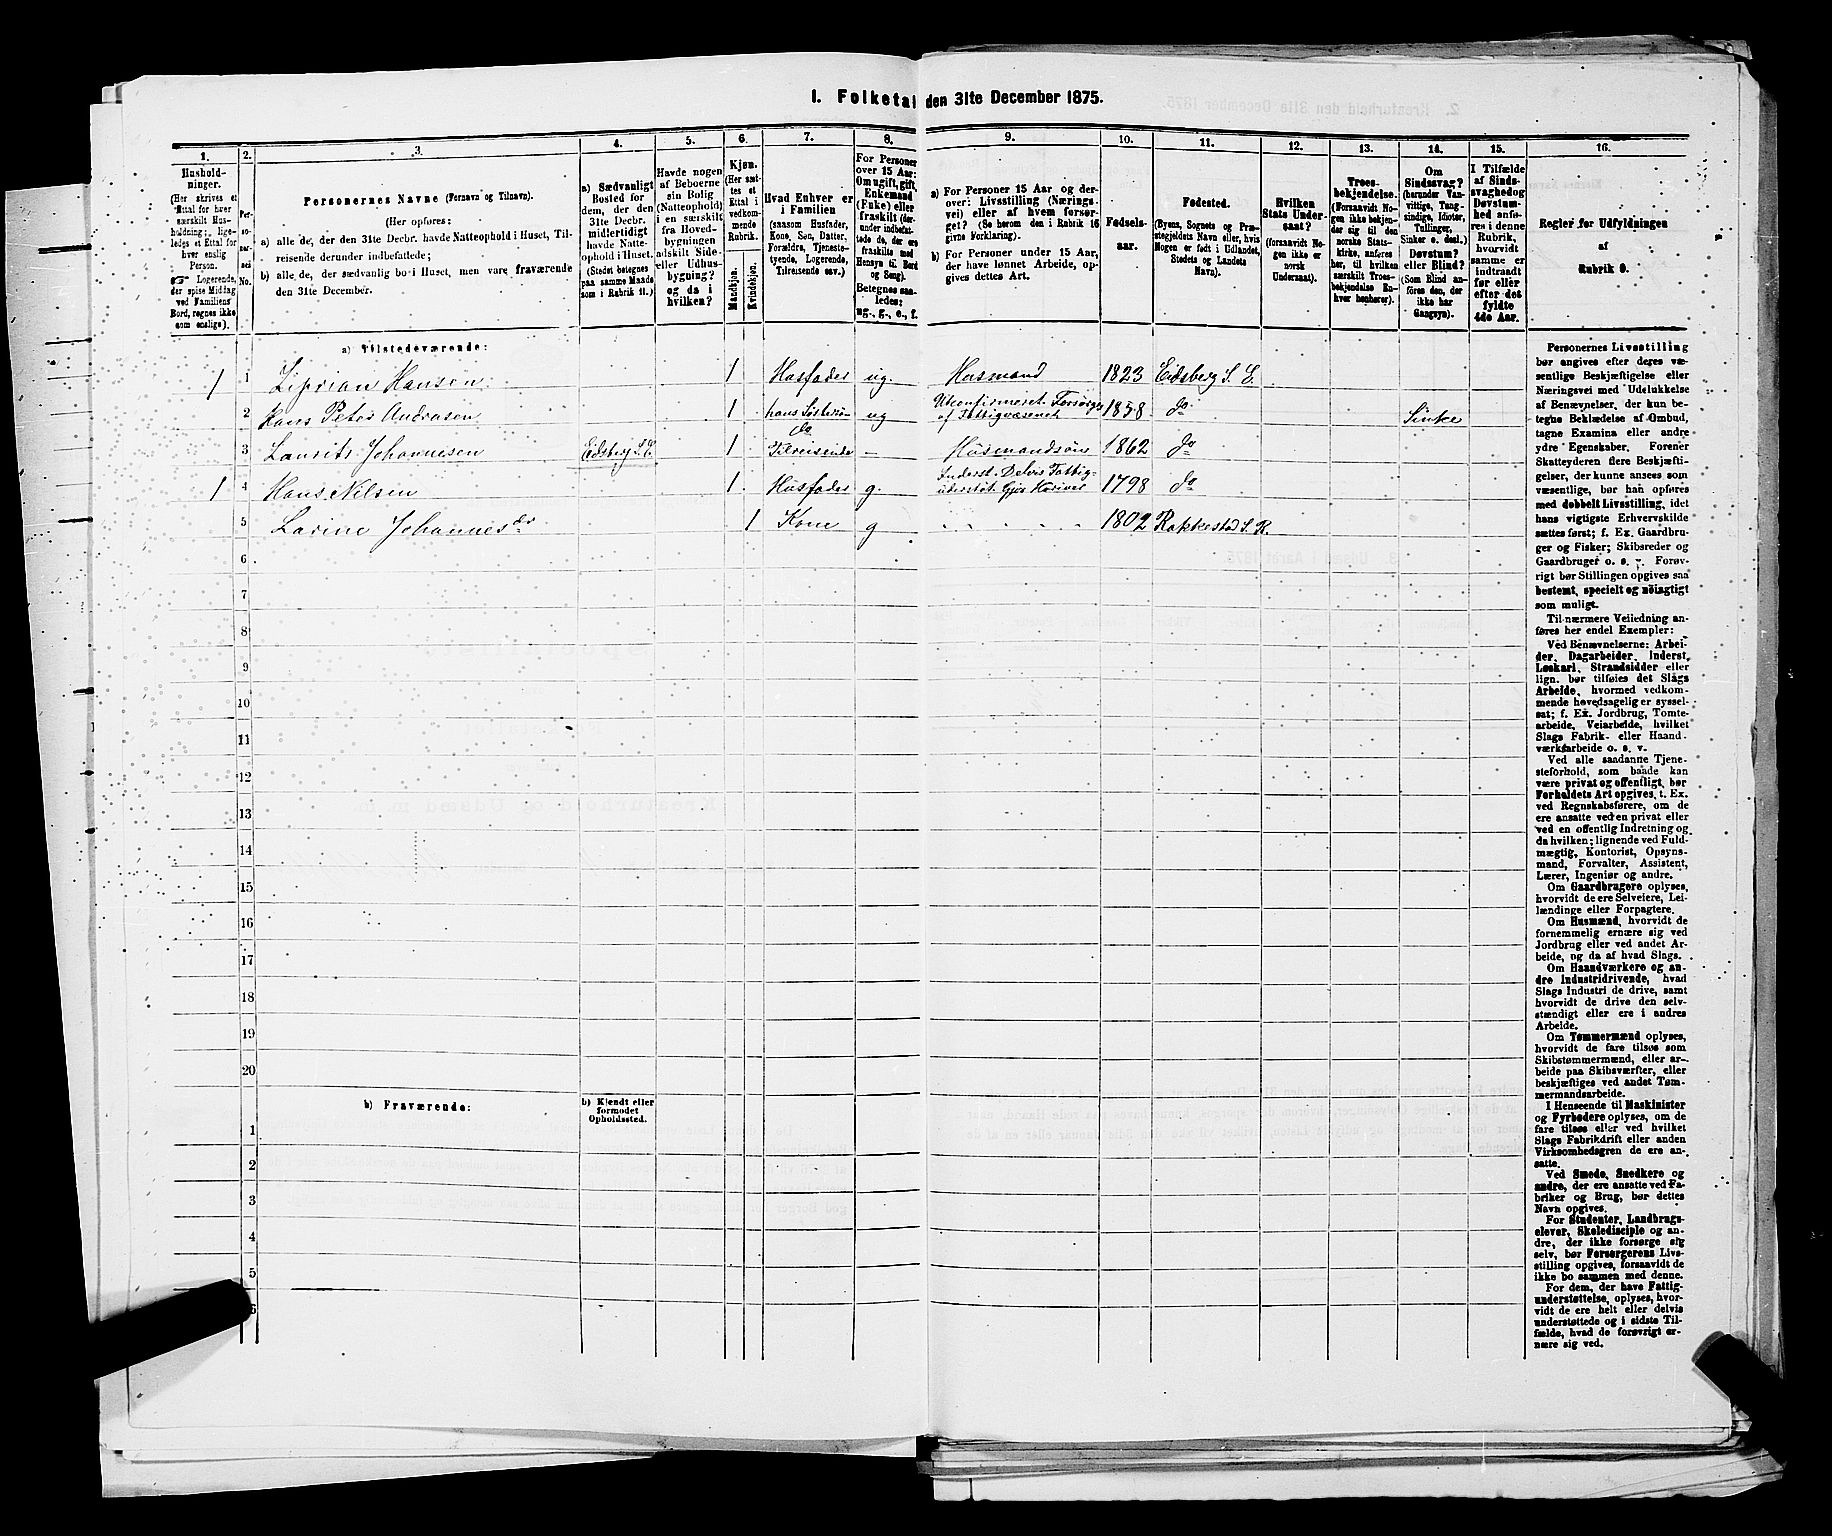 1. Folketal den 31te December 1875.
1.
Husholdninger.
(Her skrives et
Ettal for hver
særskilt Husholdning; ligeledes
et Ettal for
hver enslig
Person.
Logerende,
der spise Middag
ved Familiens
Bord, regnes ikke
som enslige).
2.
Personernes
No.
3.
Personernes Navne (Fornavn og Tilnavn).
(Her opføres:
a) alle de, der den 31te Decbr. havde Natteophold i Huset, Tilreisende
derunder indbefattede;
b) alle de, der sædvanlig bo i Huset, men vare fraværende
den 31te December.
4.
a) Sædvanligt
Bosted for
dem, der den
31te Decbr.
midlertidigt
havde Natteophold
i Huset.
(Stedet betegnes
paa samme Maade
som i Rubrik 11.)
5.
Havde nogen
af Beboerne
sin Bolig
(Natteophold)
i en særskilt
fra Hovedbygningen
adskilt Side-
eller Udhusbygning?
og da i
hvilken?
6.
Kjøn.
(Her sættes
et
Ettal i
vedkommende
Rubrik.
Mandkjøn.
Kvindekjøn.
7.
Hvad Enhver er
i Familien
(saasom Husfader,
Kone, Søn, Datter,
Forældre, Tjenestetyende,
Logerende,
Tilreisende osv.)
8.
For Personer
over 15 Aar:
Om ugift, gift,
Enkemand
(Enke) eller
fraskilt (derunder
indbefattede
de, der ere
fraskilte med
Hensyn til Bord
og Seng).
Betegnes saaledes:
ug., g., e., f.
9.
a) For Personer 15 Aar og derover:
Livsstilling (Næringsvei)
eller af hvem forsørget?
(Se herom den i Rubrik 16
givne Forklaring).
b) For Personer under 15 Aar,
der have lønnet Arbeide, opgives
dettes Art.
10.
Fødselsaar.
11.
Fødested.
(Byens, Sognets og Præstegjeldets
Navn eller, hvis
Nogen er født i Udlandet,
Stedets og Landets
Navn).
12.
Hvilken
Stats Undersaat?
(forsaavidt Nogen
ikke er
norsk
Undersaat).
13.
Troesbekjendelse.
(Forsaavidt Nogen
ikke bekjender
sig til den
norske Statskirke,
anføres
her, til hvilken
særskilt Troesbekjendelse
Enhver
henhører).
14.
Om
Sindssvag?
(herunder Vanvittige,
Tungsindige,
Idioter,
Tullinger,
Sinker o. desl.)
Døvstum?
eller Blind?
(Som Blind anføres
den, der
ikke har
Gangsyn).
15.
I Tilfælde
af Sindssvaghed
og
Døvstumhed
anføres
i denne
Rubrik,
hvorvidt
samme er
indtraadt
før eller
efter det
fyldte
4de Aar.
16.
Regler for Udfyldningen
af
Rubrik 9.
a) Tilstedeværende:
1 1 Ziprian Hansen 1 Husfader ug. Husmand 1823 Eidsberg S. E.
2 Hans Peter Andresen 1 hans Søstersøn ug Ukonfirmeret. Forsørges af Fattigvæsenet 1858 do Sinke
3 Laurits Johannesen Eidsberg S. E. 1 do Tilreisende – Husmandssøn 1862 do
1 4 Hans Nilsen 1 Husfader g. Inderst. Delvis Fattigunderstøt. 1798 do
5 Larine Johannesdr 1 Kone g 1802 Rakkestad S. R.
6
7
8
9
10
11
12
13
14
15
16
17
18
19
20
b) Fraværende:
b) Kjendt eller
formodet
Opholdssted.
1
2
3
4
5
6
Personernes Livsstilling
bør angives efter deres væsentlige
Beskjæftigelse eller
Næringsvei med Udelukkelse
af Benævnelser, der kun betegne
Beklædelse af Ombud,
tagne Examina eller andre
ydre Egenskaber. Forener
Skatteyderen flere Beskjæftigelser,
der kunne ansees som
væsentlige, bør han opføres
med dobbelt Livsstilling, idet
hans vigtigste Erhvervskilde
sættes først; f. Ex. Gaardbruger
og Fisker; Skibsreder og
Gaardbruger o. s. v. Forøvrigt
bør Stillingen opgives saa
bestemt, specielt og nøiagtigt
som muligt.
Til nærmere Veiledning anføres
her endel Exempler:
Ved Benævnelserne: Arbeider,
Dagarbeider, Inderst,
Løskarl, Strandsidder eller
lign. bør tilføies det Slags
Arbeide, hvormed vedkommende
hovedsagelig er sysselsat;
f. Ex. Jordbrug, Tomtearbeide,
Veiarbeide, hvilket
Slags Fabrik- eller Haandværksarbeide
o. s. v.
Ved alle saadanne Tjenesteforhold,
som baade kan
være privat og offentligt, bør
Forholdets Art opgives, t. Ex.
ved Regnskabsførere, om de
ere ansatte ved en privat eller
ved en offentlig Indretning og
da hvilken; lignende ved Fuldmægtig,
Kontorist, Opsynsmand,
Forvalter, Assistent,
Lærer, Ingeniør og andre.
Om Gaardbrugere oplyses,
hvorvidt de ere Selveiere, Leilændinge
eller Forpagtere.
Om Husmænd, hvorvidt de
fornemmelig ernære sig ved
Jordbrug eller ved andet Arbeide,
og da af hvad Slags.
Om Haandværkere og andre
Industridrivende, hvad
Slags Industri de drive, samt
hvorvidt de drive den selvstændigt
eller ere i andres
Arbeide.
Om Tømmermænd oplyses,
hvorvidt de fare tilsøs som
Skibstømmermænd, eller arbeide
paa Skibsværfter, eller
beskjæftiges ved andet Tømmermandsarbeide.
I Henseende til Maskinister
og Fyrbødere oplyses, om de
fare tilsøs eller ved hvilket
Slags Fabrikdrift eller anden
Virksomhedsgren de ere ansatte.
Ved Smede, Snedkere og
andre, der ere ansatte ved Fabriker
og Brug, bør dettes
Navn opgives.
For Studenter, Landbrugselever,
Skoledisciple og andre,
der ikke forsørge sig
selv, bør Forsørgerens Livsstilling
opgives, forsaavidt de
ikke bo sammen med denne.
For dem, der have Fattigunderstøttelse,
oplyses, hvorvidt
de ere helt eller delvis
understøttede og i sidste Tilfælde,
hvad de forøvrigt ernære
sig ved.